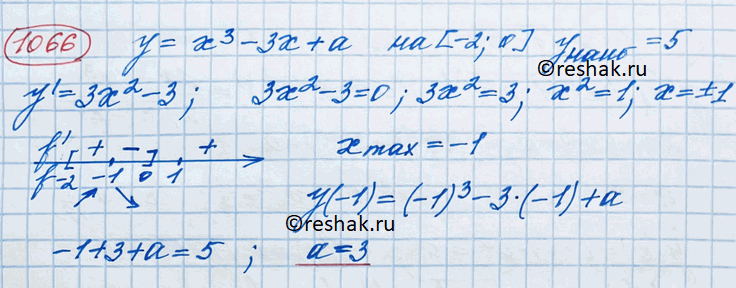 1066 y = x³ - 3x + a на [-2; 0] yнаиб = 5
©reshak.ru
y' = 3x² - 3; 3x² - 3 = 0; 3x² = 3; x² = 1; x = ±1
f' [ + - ] + xmax = -1
f -2 -1 0 1
y(-1) = (-1)³ - 3·(-1) + a
©reshak.ru
-1 + 3 + a = 5; a = 3